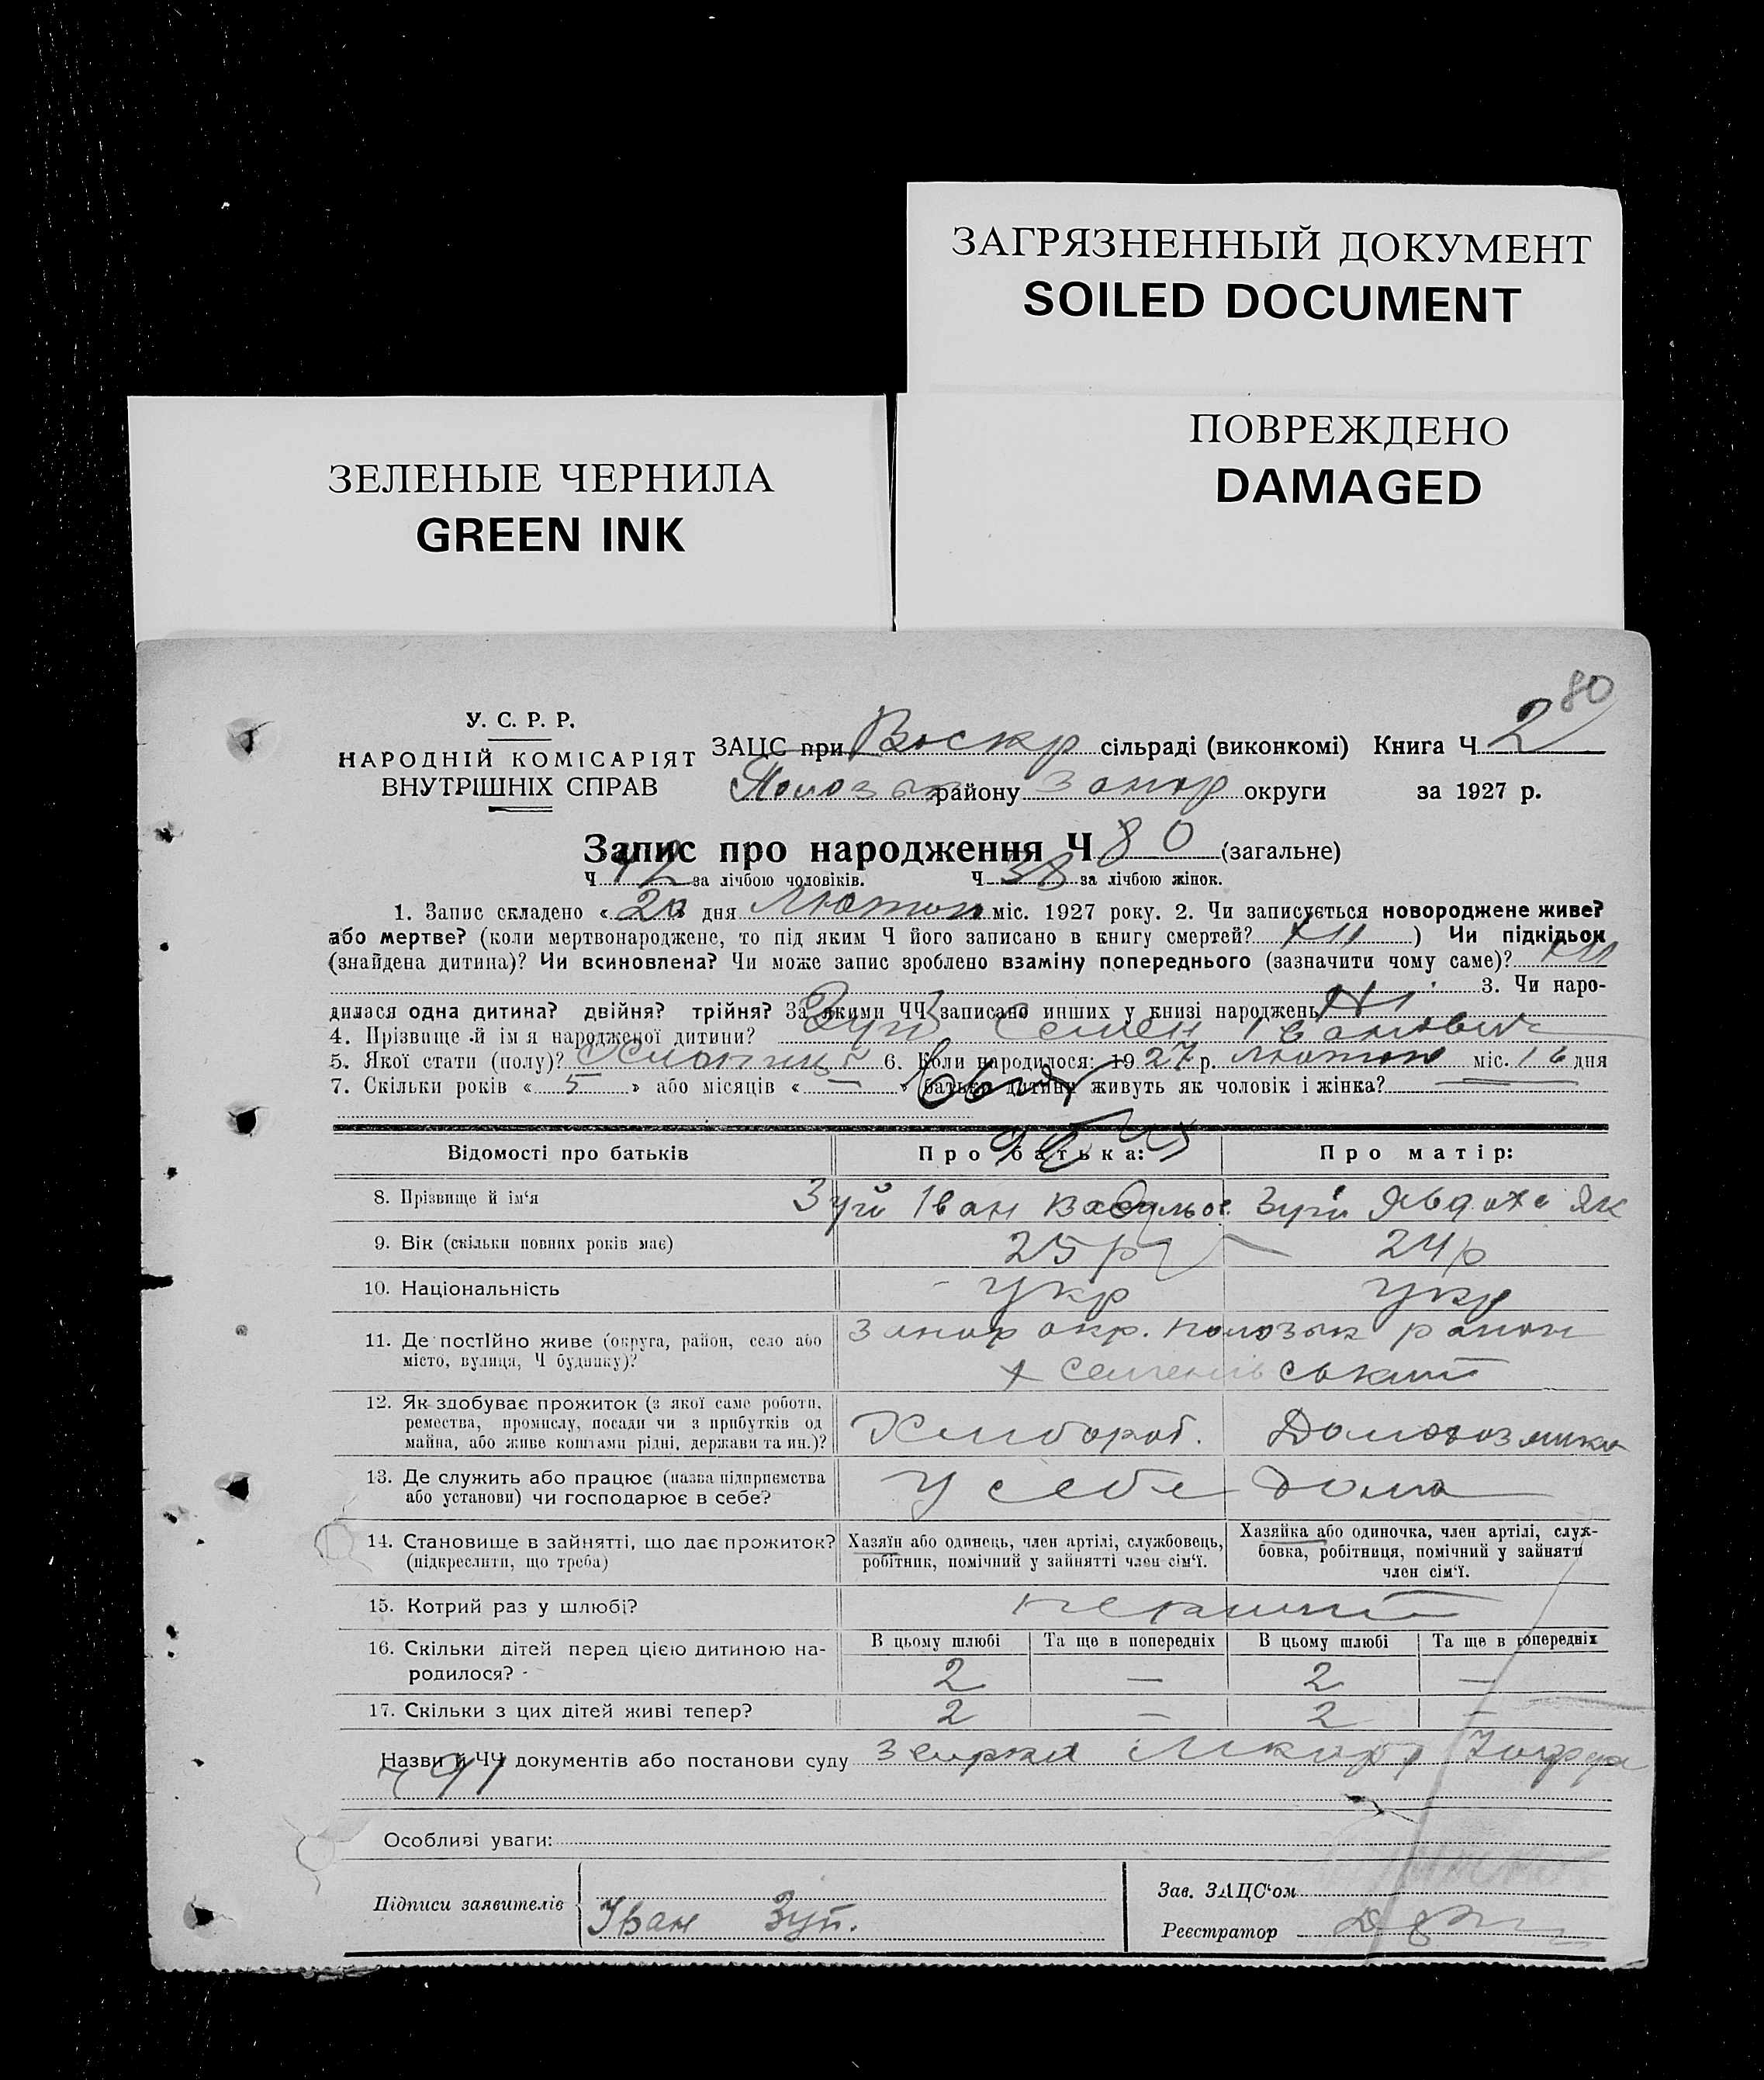 ЗАГРЯЗНЕННЫЙ ДОКУМЕНТ
SOILED DOCUMENT
ПОВРЕЖДЕНО
DAMAGED
ЗЕЛЕНЫЕ ЧЕРНИЛА
GREEN INK
80
У. С. Р. Р.
НАРОДНІЙ КОМІСАРІЯТ
ВНУТРІШНІХ СПРАВ
ЗАЦС при Воскр сільраді (виконкомі) Книга Ч 2
району Запор округи за 1927 р.
Запис про народження Ч 80 (загальне)
Ч 42 за лічбою чоловіків. Ч 38 за лічбою жінок.
1. Запис складено « 20 » дня Лютого міс. 1927 року. 2. Чи записується новороджене живе?
або мертве? (коли мертвонароджене, то під яким Ч його записано в книгу смертей? ) Чи підкідьок
(знайдена дитина)? Чи всиновлена? Чи може запис зроблено взаміну попереднього (зазначити чому саме)?
3. Чи наро-
дилася одна дитина? двійня? трійня? За якими ЧЧ записано инших у книзі народжень Ні
4. Прізвище й ім я народженої дитини? Зуй Семен Іванович
5. Якої стати (полу)? 6. Коли народилося: 1927 р. Лютого міс. 16 дня
7. Скільки років « 5 » або місяців « — » батьки дитини живуть як чоловік і жінка?
Відомості про батьків Про батька: Про матір:
8. Прізвище й ім'я Зуй Іван Зуй Явдоха Як
9. Вік (скільки повних років має) 25 р 24 р
10. Національність Укр Укр
11. Де постійно живе (округа, район, село або
місто, вулиця, Ч будинку)?
Запор окр. Полозьк район
12. Як здобуває прожиток (з якої саме роботи,
ремества, промислу, посади чи з прибутків од
майна, або живе коштами рідні, держави та ин.)?
Хлибороб.
13. Де служить або працює (назва підприємства
або установи) чи господарює в себе?
У себе Дома
14. Становище в зайнятті, що дає прожиток?
(підкреслити, що треба)
Хазяїн або одинець, член артілі, службовець,
робітник, помічний у зайнятті член сім'ї.
Хазяйка або одиночка, член артілі, служ-
бовка, робітниця, помічний у зайнятті
член сім'ї.
15. Котрий раз у шлюбі?
16. Скільки дітей перед цією дитиною на-
родилося?
В цьому шлюбі Та ще в попередніх В цьому шлюбі Та ще в попередніх
2 — 2 —
17. Скільки з цих дітей живі тепер? 2 — 2 —
Назви й ЧЧ документів або постанови суду
Особливі уваги:
Підписи заявителів Іван Зуй.
Зав. ЗАЦС'ом
Реєстратор